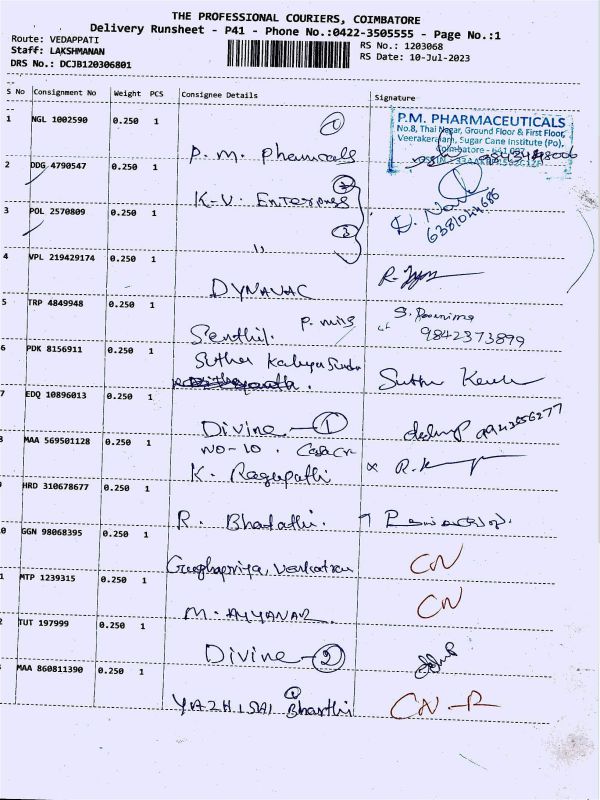 THE PROFESSIONAL COURIERS, COIMBATORE
Delivery Runsheet - P41 - Phone No.:0422-3505555 - Page No.:1
Route: VEDAPPATI
Staff: LAKSHMANAN
DRS No.: DCJB120306801
RS No.: 1203068
RS Date: 10-Jul-2023
S No Consignment No Weight PCS Consignee Details Signature
1 NGL 1002590 0.250 1
P.M. PHARMACEUTICALS
No.8, Thai Nagar, Ground Floor & First Floor,
Veerakeralam, Sugar Cane Institute (Po),
Coimbatore - 641 007
P. M. Phamicals
2 DDG 4790547 0.250 1
K-V. Enterpress 2
6381044686
3 POL 2570809 0.250 1
" 3
4 VPL 219429174 0.250 1
DYNAVAC
5 TRP 4849948 0.250 1
Senthil. P. mils
S. Poornima
9842373899
6 PDK 8156911 0.250 1
Suther Kaliya Sunda
7 EDQ 10896013 0.250 1
Divine - 1
9943556277
8 MAA 569501128 0.250 1
NO-10.
K. Ragupathi
HRD 310678677 0.250 1
R. Bharathi.
0 GGN 98068395 0.250 1
CN
1 MTP 1239315 0.250 1
M. AYYANAR
CN
2 TUT 197999 0.250 1
Divine - 2
MAA 860811390 0.250 1
YAZHISAI Bharthi
CN-R